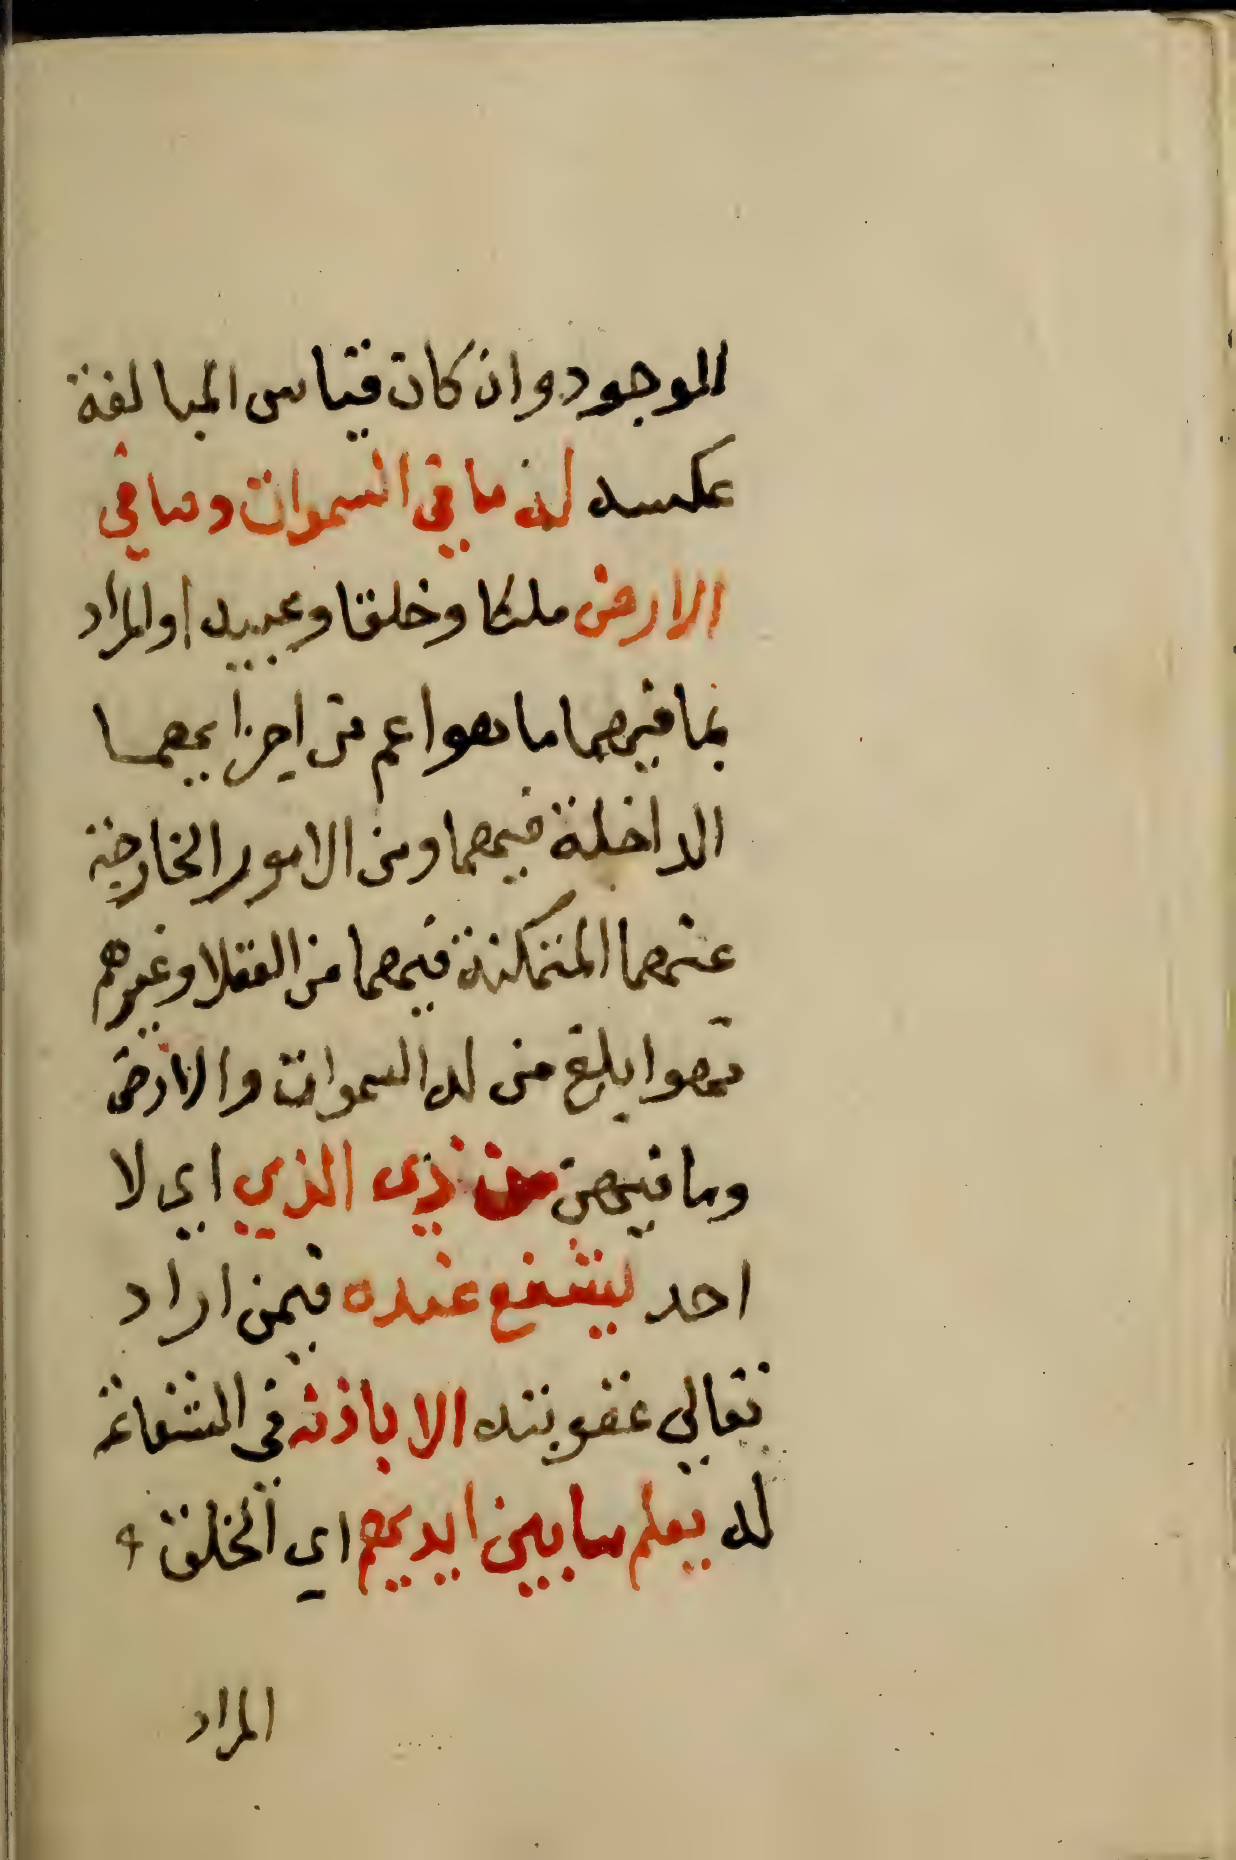 الموجود وان كان قياس المبالغة
عكسه له ما في السموات وما في
الارض ملكا وخلقا وعبيدا والمراد
بما فيهما ما هو اعم من اجزايهما
الداخلة فيهما ومن الامور الخارجة
عنهما المتمكنة فيهما من العقلا وغيرهم
فهو ابلغ من له السموات والارض
وما فيهن من ذي الذي اي لا
احد يشفع عنده فيمن اراد
تعالي عقوبته الا باذنه في الشفاعة
له يعلم ما بين ايديهم اي الخلق
المراد